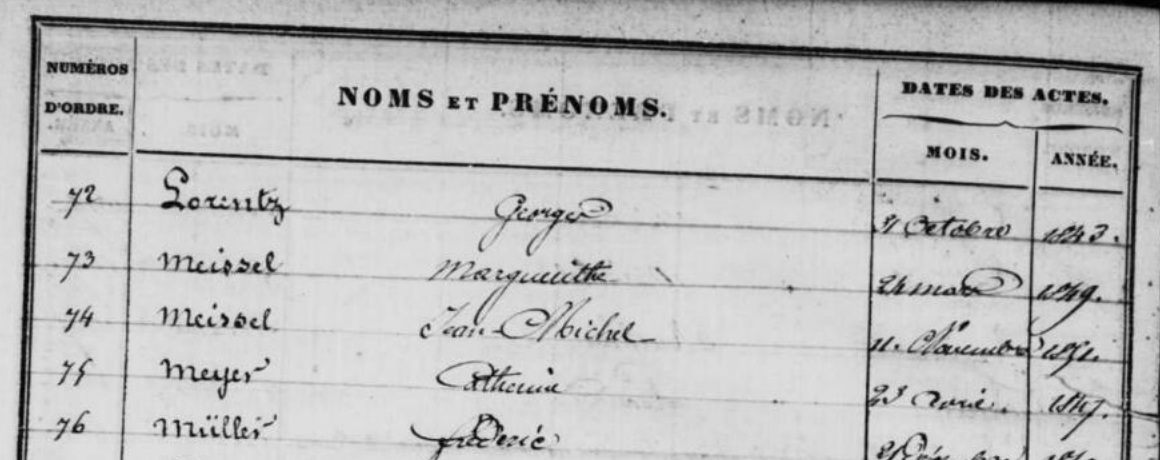 NUMÉROS D'ORDRE. NOMS ET PRÉNOMS. DATES DES ACTES.
MOIS. ANNÉE.
72 Lorentz George Octobre 1843.
73 Meissel Marguerithe 24 mars 1849.
74 Meissel Jean-Michel 11. Novembre 1851.
75 Meyer Catherine 23 1847.
76 Müller fréderic